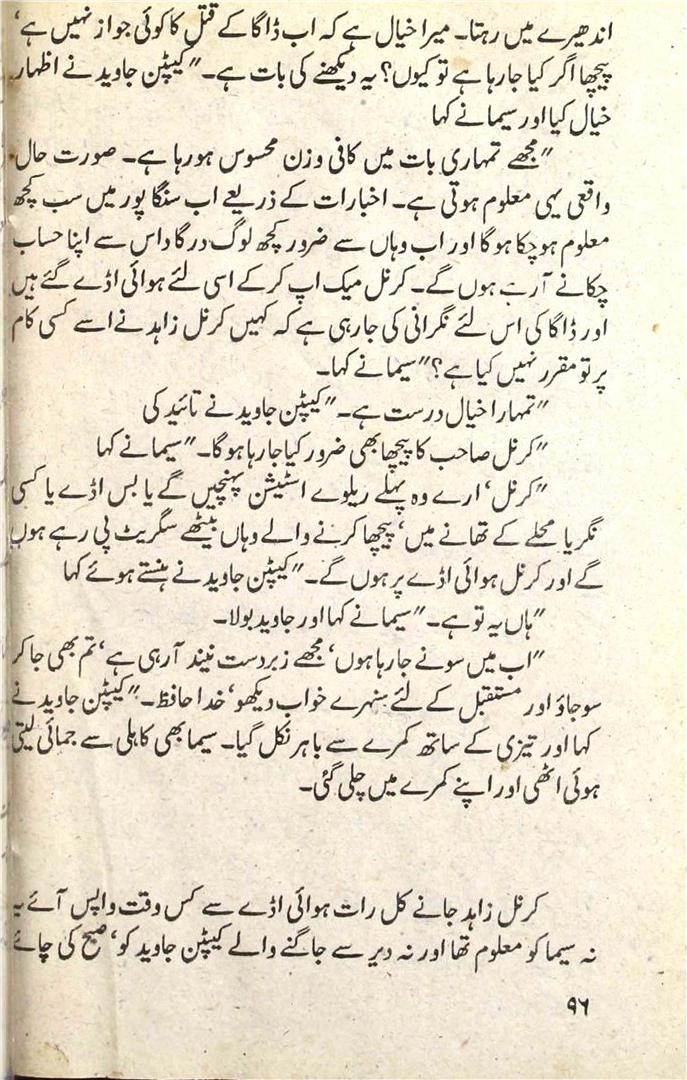 اندھیرے میں رہتا۔ میرا خیال ہے کہ اب ڈاگا کے قتل کا کوئی جواز نہیں ہے‘
پیچھا اگر کیا جا رہا ہے تو کیوں؟ یہ دیکھنے کی بات ہے۔” کیپٹن جاوید نے اظہار
خیال کیا اور سیما نے کہا
”مجھے تمہاری بات میں کافی وزن محسوس ہو رہا ہے۔ صورت حال
واقعی یہی معلوم ہوتی ہے۔ اخبارات کے ذریعے اب سنگا پور میں سب کچھ
معلوم ہو چکا ہو گا اور اب وہاں سے ضرور کچھ لوگ درگا داس سے اپنا حساب
چکانے آ رہے ہوں گے۔ کرنل میک اپ کر کے اسی لئے ہوائی اڈے گئے ہیں
اور ڈاگا کی اس لئے نگرانی کی جا رہی ہے کہ کہیں کرنل زاہد نے اسے کسی کام
پر تو مقرر نہیں کیا ہے؟” سیما نے کہا۔
”تمہارا خیال درست ہے۔” کیپٹن جاوید نے تائید کی
”کرنل صاحب کا پیچھا بھی ضرور کیا جا رہا ہو گا۔” سیما نے کہا
”کرنل‘ ارے وہ پہلے ریلوے اسٹیشن پہنچیں گے یا بس اڈے یا کسی
نگر یا محلے کے تھانے میں‘ پیچھا کرنے والے وہاں بیٹھے سگریٹ پی رہے ہوں
گے اور کرنل ہوائی اڈے پر ہوں گے۔” کیپٹن جاوید نے ہنستے ہوئے کہا
”ہاں یہ تو ہے۔” سیما نے کہا اور جاوید بولا۔
”اب میں سونے جا رہا ہوں‘ مجھے زبردست نیند آ رہی ہے‘ تم بھی جا کر
سو جاؤ اور مستقبل کے لئے سنہرے خواب دیکھو‘ خدا حافظ۔” کیپٹن جاوید نے
کہا اور تیزی کے ساتھ کمرے سے باہر نکل گیا۔ سیما بھی کاہلی سے جمائی لیتی
ہوئی اٹھی اور اپنے کمرے میں چلی گئی۔
کرنل زاہد جانے کل رات ہوائی اڈے سے کس وقت واپس آئے یہ
نہ سیما کو معلوم تھا اور نہ دیر سے جاگنے والے کیپٹن جاوید کو‘ صبح کی چائے
۹۶